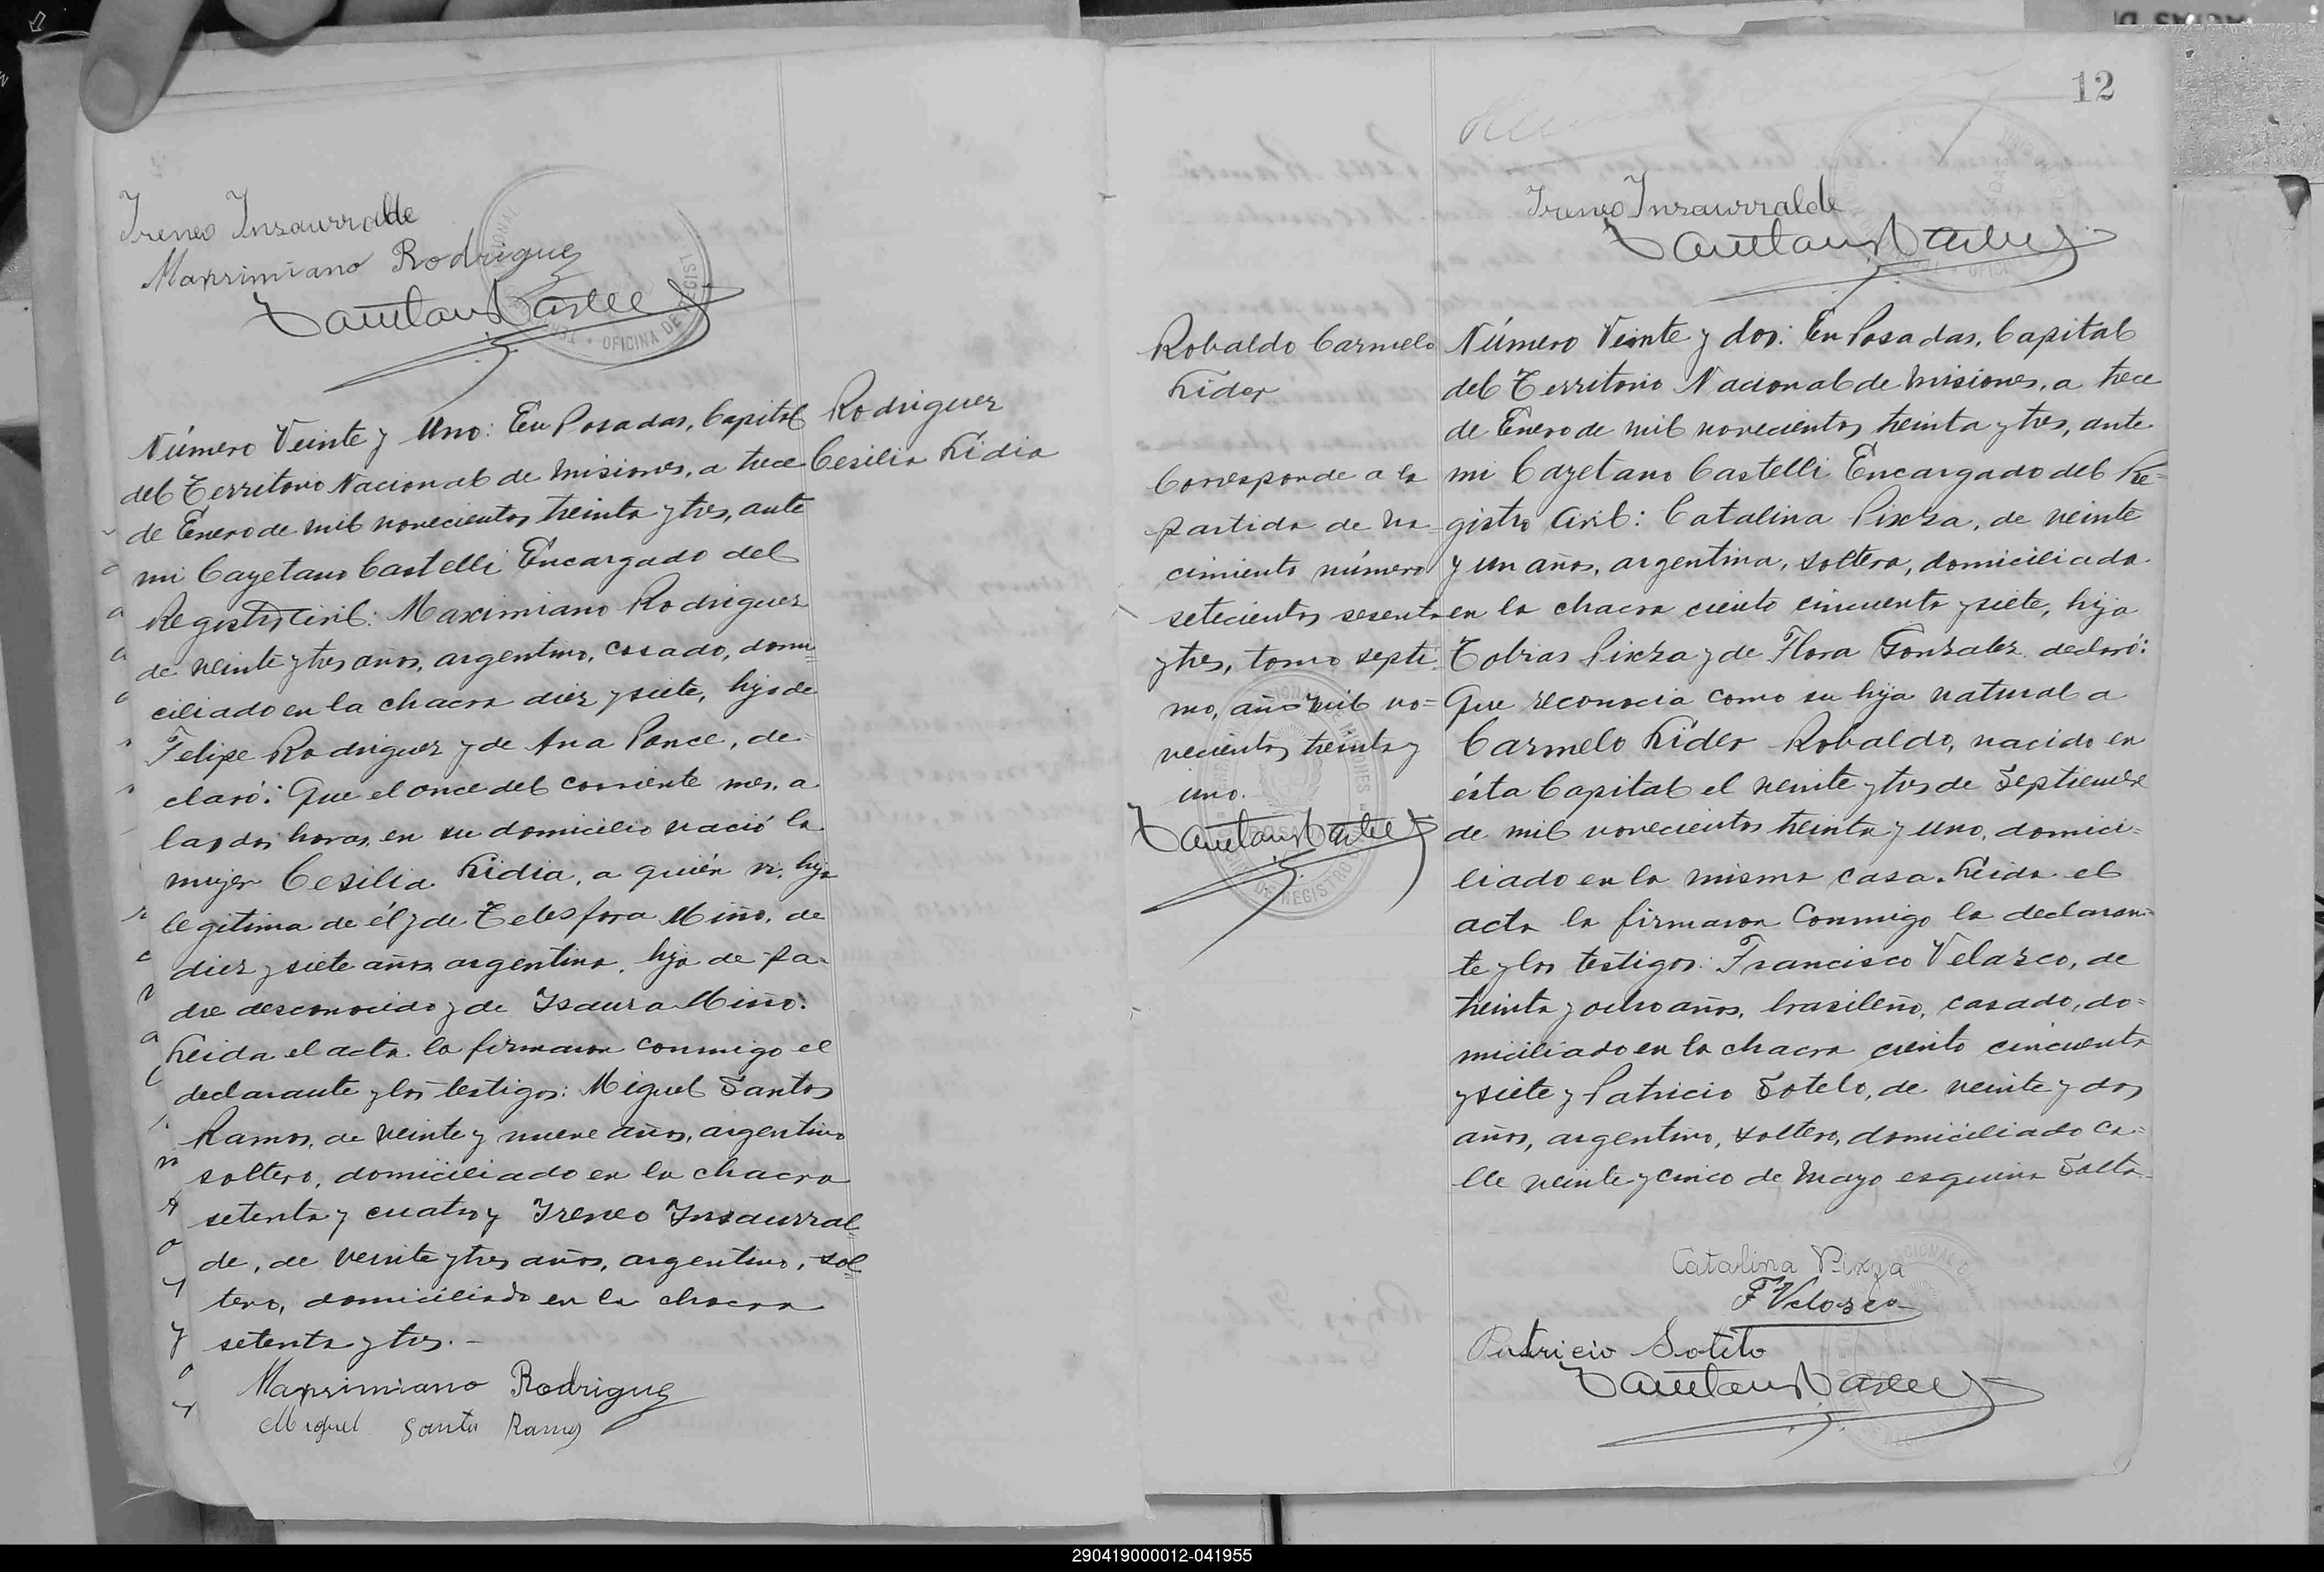 Ireneo Insaurralde
Maxsimiano Rodriguez
OFICINA DE REGIST
Número Veinte y Uno: En Posadas, Capital
del Territorio Nacional de Misiones, a trece
de Enero de mil novecientos treinta y tres, ante
mi Cayetano Castelli Encargado del
Registro Civil: Maximiano Rodriguez
de veinte y tres años, argentino, casado, domi=
ciliado en la chacra diez y siete, hijo de
Felipe Rodriguez y de Ana Ponce, de-
claró: Que el once del corriente mes, a
las dos horas, en su domicilio nació la
mujer Cesilia Lidia, a quién vi, hija
legitima de él y de Telesfora Miño, de
diez y siete años argentina, hija de pa-
dre desconocido y de Isaura Miño:
Leida el acta la firmaron conmigo el
declarante y los testigos: Miguel Santos
Ramos, de veinte y nueve años, argentino
soltero, domiciliado en la chacra
setenta y cuatro y Ireneo Insaurral
de, de veinte y tres años, argentino, sol=
tero, domiciliado en la chacra
setenta y tres. -
Maxsimiano Rodriguez
Miguel Santo Ramos
Rodriguez
Cesilia Lidia
12
Ireneo Insaurralde
Robaldo Carmelo
Lider
Corresponde a la
partida de na
cimiento número
setecientos sesenta
y tres, tomo septi
mo, año mil no=
vecientos treinta y
uno.
Número Veinte y dos: En Posadas, Capital
del Territorio Nacional de Misiones, a trece
de Enero de mil novecientos treinta y tres, ante
mi Cayetano Castelli Encargado del Re=
gistro Civil: Catalina Pixza, de veinte
y un años, argentina, soltera, domiciliada
en la chacra ciento cincuenta y siete, hija
Tobias Pixza y de Flora Gonzalez declaró:
Que reconocia como su hija natural a
Carmelo Lider Robaldo, nacido en
ésta Capital el veinte y tres de Septiembre
de mil novecientos treinta y uno, domici=
liado en la misma casa. Leida el
acta la firmaron conmigo la declaran-
te y los testigos: Francisco Velazco, de
treinta y ocho años, brasileño, casado, do=
miciliado en la chacra ciento cincuenta
y siete y Patricio Sotelo, de veinte y dos
años, argentino, soltero, domiciliado ca-
lle veinte y cinco de Mayo esquina Salta.
Catalina Pixza
F Velozco
Patricio Sotelo
290419000012-041955